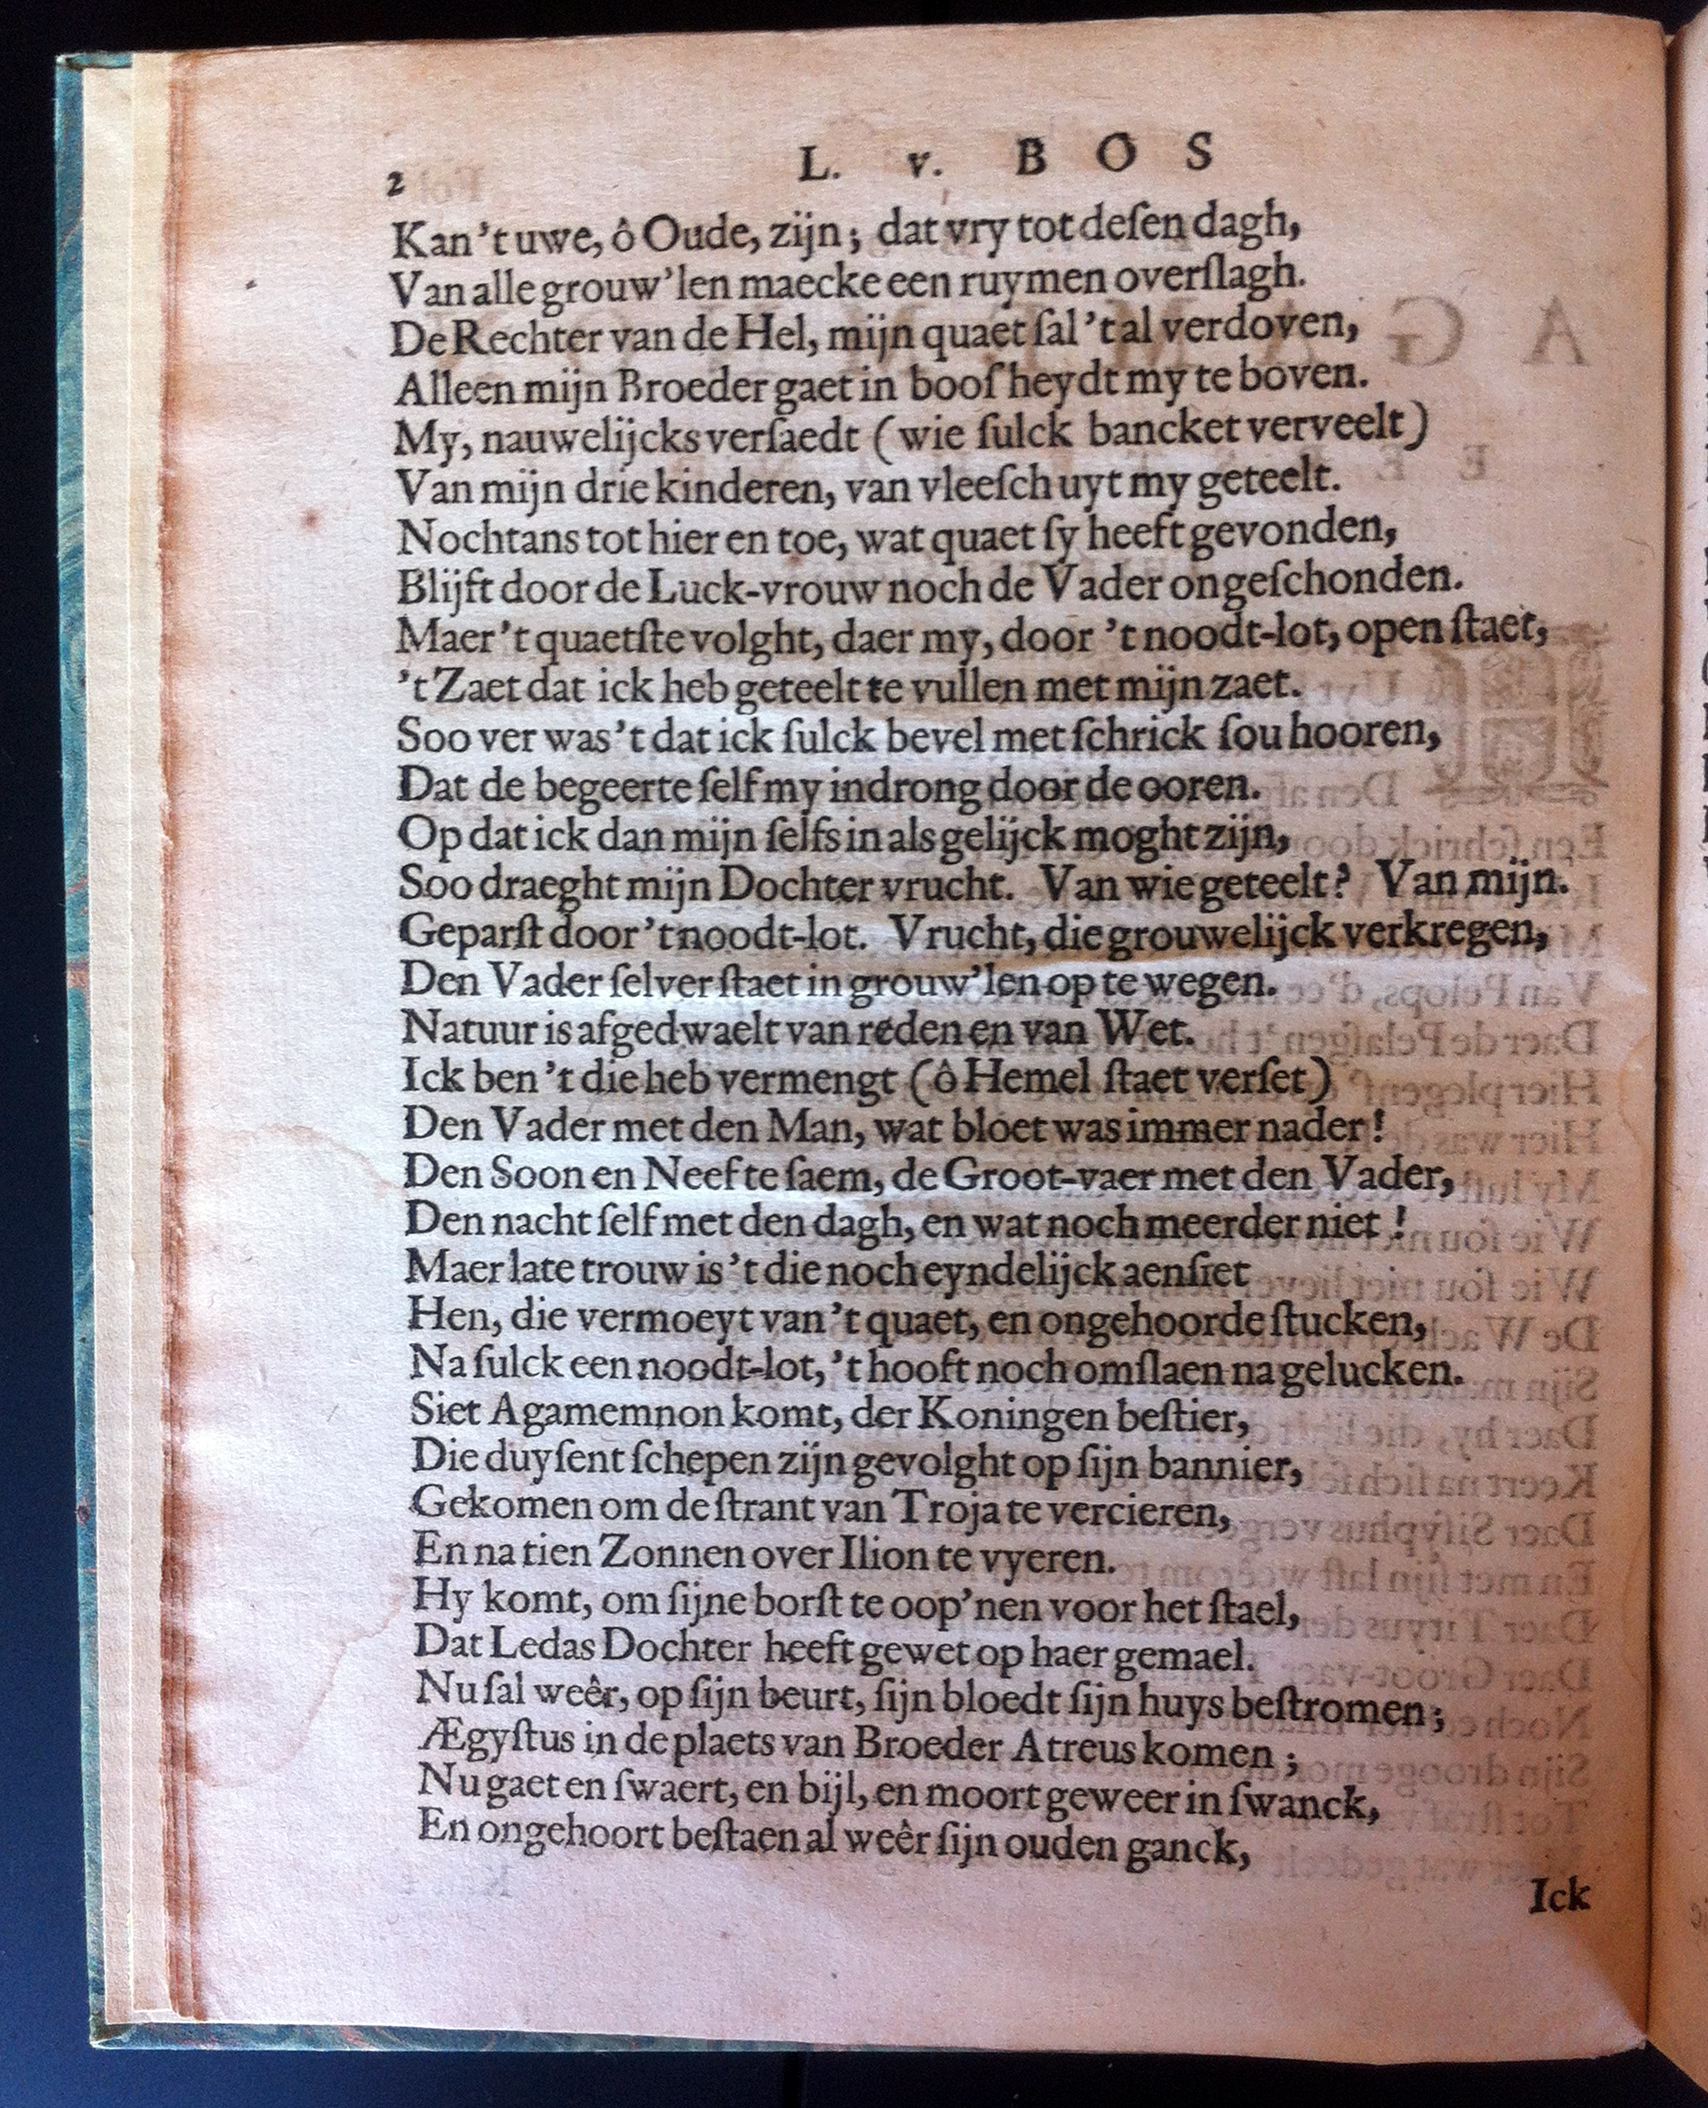 2 L. v. BOS
Kan 't uwe, ô Oude, zijn; dat vry tot deſen dagh,
Van alle grouw'len maecke een ruymen overſlagh.
De Rechter van de Hel, mijn quaet ſal 't al verdoven,
Alleen mijn Broeder gaet in booſheydt my te boven.
My, nauwelijcks verſaedt (wie ſulck bancket verveelt)
Van mijn drie kinderen, van vleeſch uyt my geteelt.
Nochtans tot hier en toe, wat quaet ſy heeft gevonden,
Blijft door de Luck-vrouw noch de Vader ongeſchonden.
Maer 't quaetſte volght, daer my, door 't noodt-lot, open ſtaet,
't Zaet dat ick heb geteelt te vullen met mijn zaet.
Soo ver was 't dat ick ſulck bevel met ſchrick ſou hooren,
Dat de begeerte ſelf my indrong door de ooren.
Op dat ick dan mijn ſelfs in als gelijck moght zijn,
Soo draeght mijn Dochter vrucht. Van wie geteelt? Van mijn.
Geparſt door 't noodt-lot. Vrucht, die grouwelijck verkregen,
Den Vader ſelver ſtaet in grouw'len op te wegen.
Natuur is afgedwaelt van reden en van Wet.
Ick ben 't die heb vermengt (ô Hemel ſtaet verſet)
Den Vader met den Man, wat bloet was immer nader!
Den Soon en Neef te ſaem, de Groot-vaer met den Vader,
Den nacht ſelf met den dagh, en wat noch meerder niet!
Maer late trouw is 't die noch eyndelijck aenſiet
Hen, die vermoeyt van 't quaet, en ongehoorde ſtucken,
Na ſulck een noodt-lot, 't hooft noch omſlaen na gelucken.
Siet Agamemnon komt, der Koningen beſtier,
Die duyſent ſchepen zijn gevolght op ſijn bannier,
Gekomen om de ſtrant van Troja te vercieren,
En na tien Zonnen over Ilion te vyeren.
Hy komt, om ſijne borſt te oop'nen voor het ſtael,
Dat Ledas Dochter heeft gewet op haer gemael.
Nu ſal weêr, op ſijn beurt, ſijn bloedt ſijn huys beſtromen;
Ægyſtus in de plaets van Broeder Atreus komen;
Nu gaet en ſwaert, en bijl, en moort geweer in ſwanck,
En ongehoort beſtaen al weêr ſijn ouden ganck,
Ick